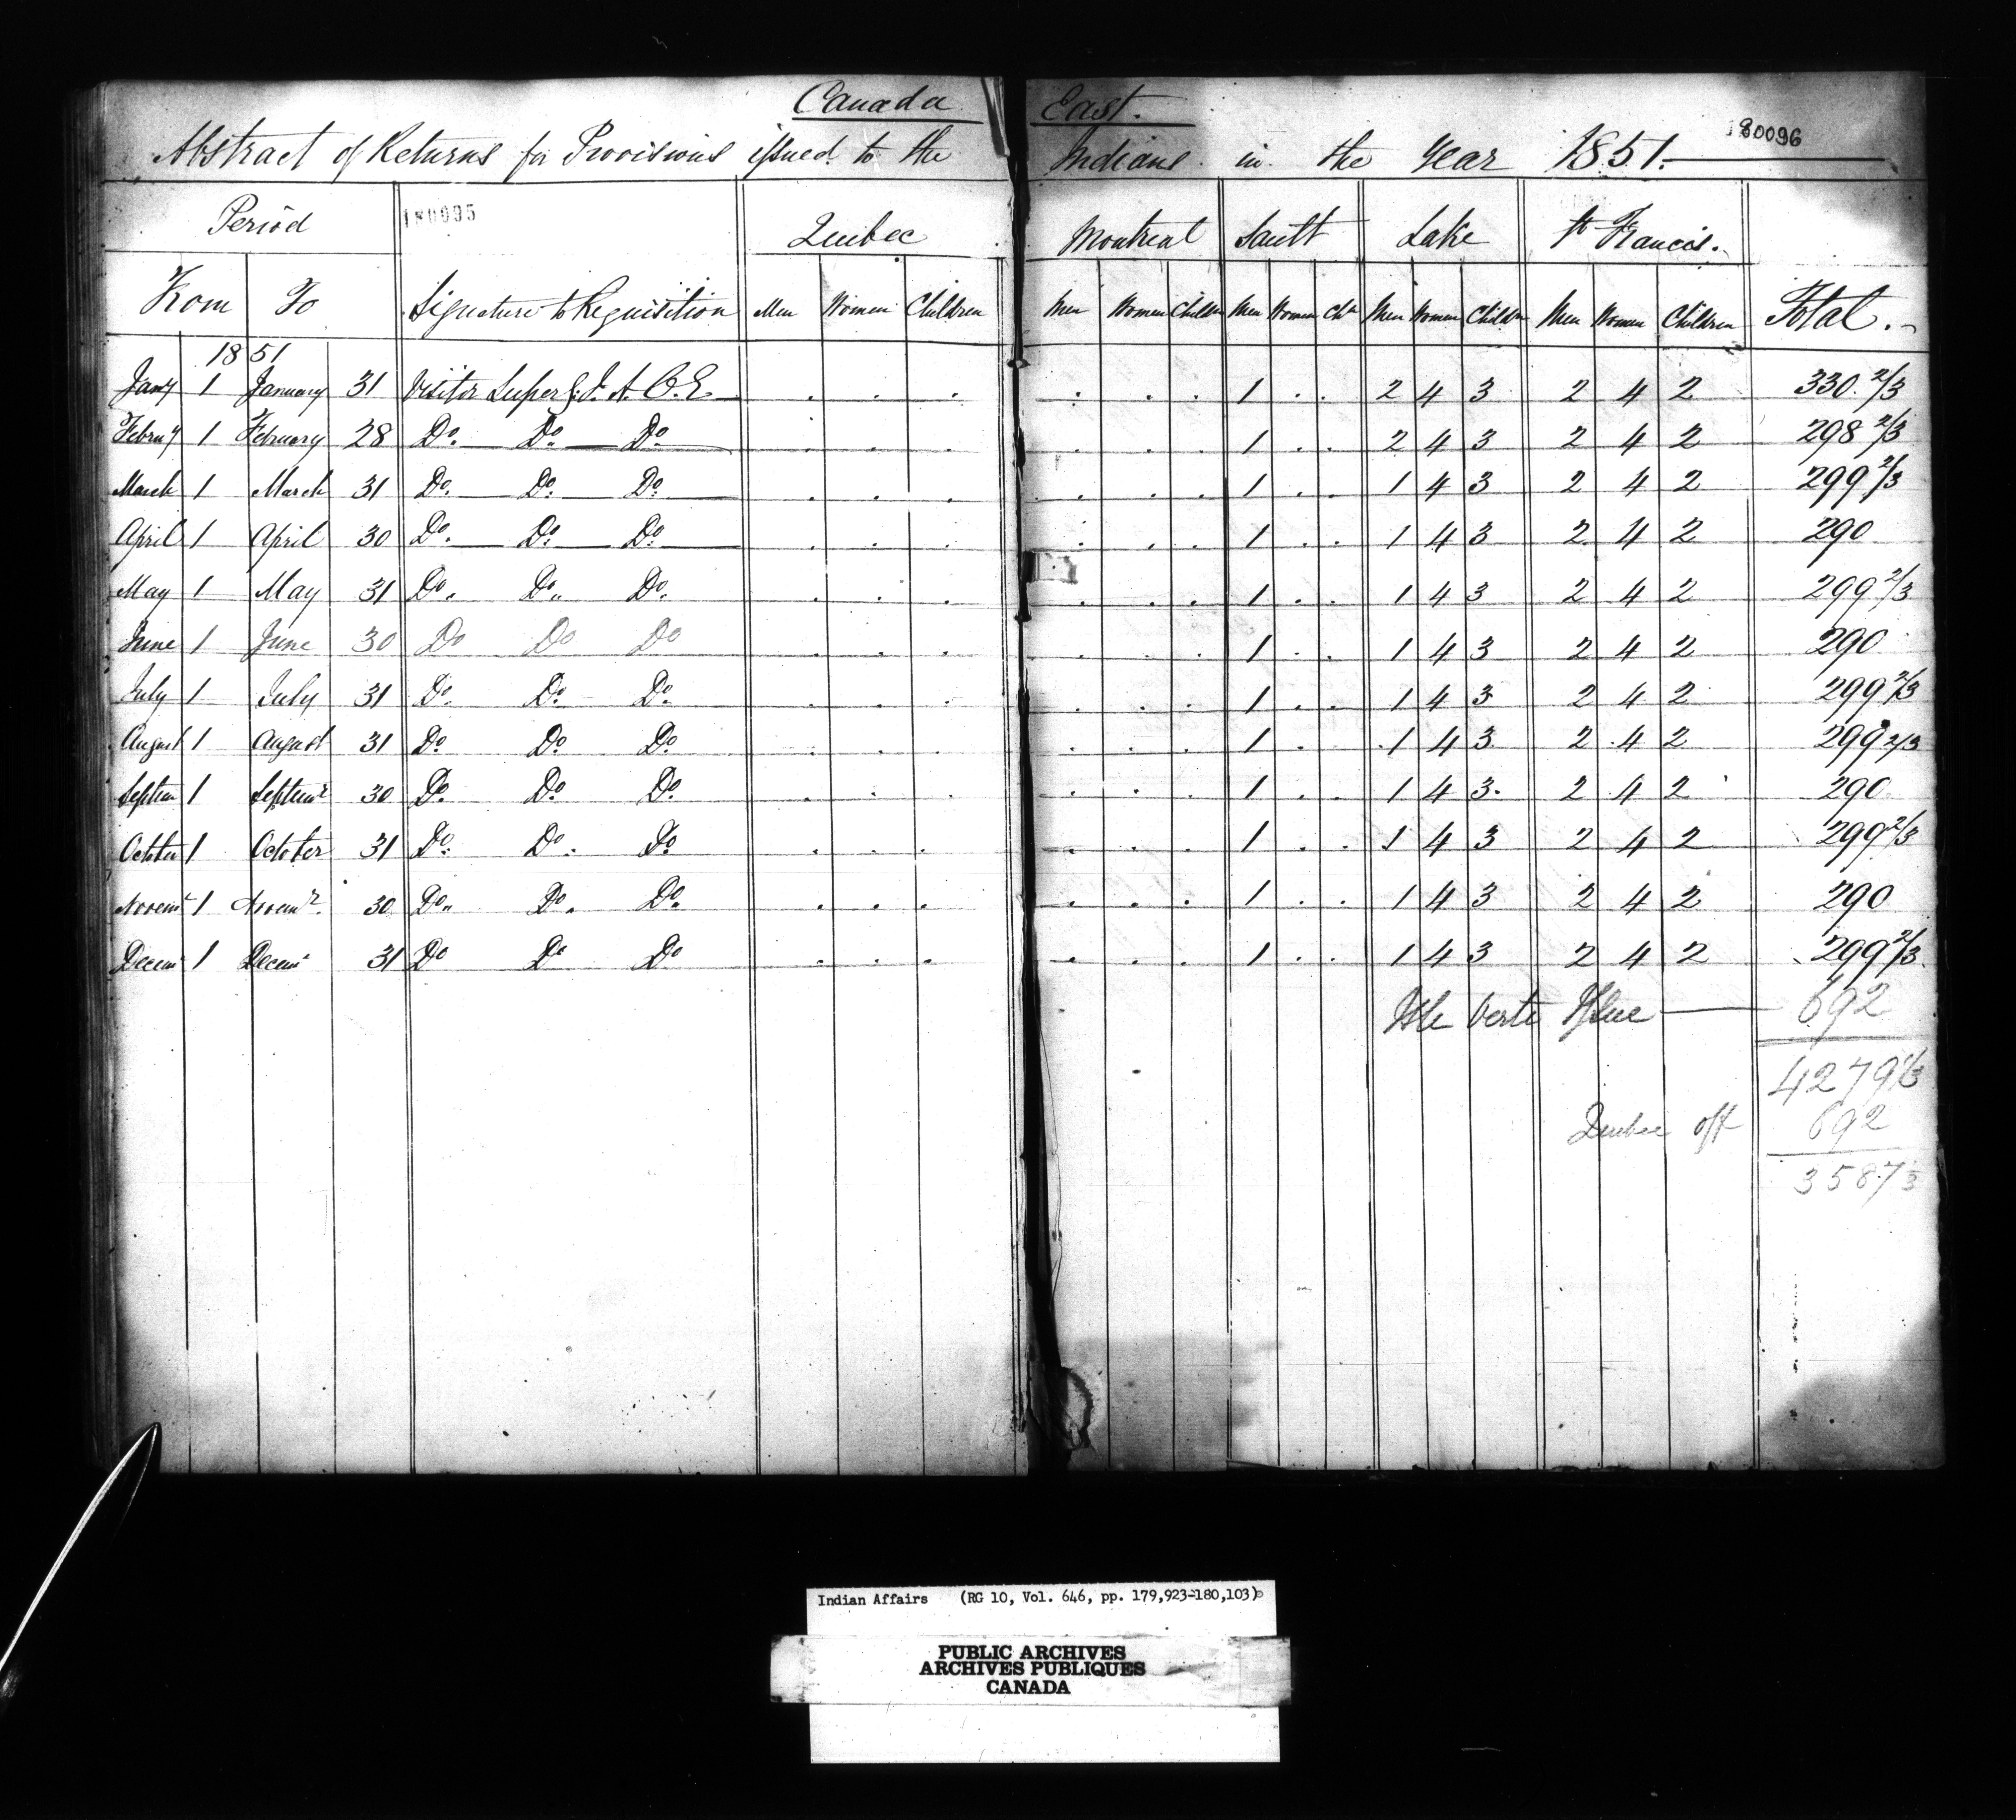 Canada East.
180096
Abstract of Returns for Provisions issued to the Indians in the Year 1851.
Period 180095 Quebec Montreal Sault Lake St Francis.
From To Signature to Requisition Men Women Children Men Women Children Men Women Chn Men Women Children Men Women Children Total.
1851
Jany 1 January 31 Visitor Super I. A. C. E. . . . . . . 1 . . 2 4 3 2 4 2 330 2/3
Febru'y 1 February 28 Do. Do. Do . . . . . . 1 . . 2 4 3 2 4 2 298 2/3
March 1 March 31 Do. Do. Do. . . . . . . 1 . . 1 4 3 2 4 2 299 2/3
April 1 April 30 Do. Do. Do. . . . . . . 1 . . 1 4 3 2 4 2 290
May 1 May 31 Do. Do. Do. . . . . . . 1 . . 1 4 3 2 4 2 299 2/3
June 1 June 30 Do Do Do . . . . . . 1 . . 1 4 3 2 4 2 290
July 1 July 31 Do. Do. Do. . . . . . . 1 . . 1 4 3 2 4 2 299 2/3
August 1 August 31 Do Do Do . . . . . . 1 . . 1 4 3 2 4 2 299 2/3
Septem 1 Septemr 30 Do. Do. Do. . . . . . . 1 . . 1 4 3 2 4 2 290
October 1 October 31 Do. Do. Do . . . . . . 1 . . 1 4 3 2 4 2 299 2/3
Novemr 1 Novemr. 30 Do. Do. Do. . . . . . . 1 . . 1 4 3 2 4 2 290
Decemr 1 Decemr 31 Do Do Do . . . . . . 1 . . 1 4 3 2 4 2 299 2/3
Isle Verte Issue 692
4279 1/3
Quebec off 692
3587 1/3
Indian Affairs (RG 10, Vol. 646, pp. 179,923-180,103)
PUBLIC ARCHIVES
ARCHIVES PUBLIQUES
CANADA